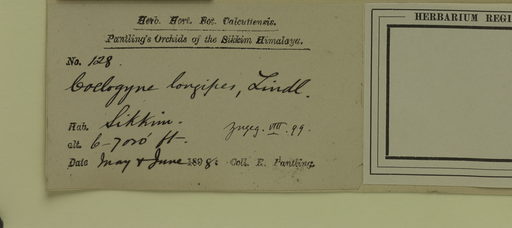 Herb. Hort. Bot. Calcuttensis.
Pantling's Orchids of the Sikkim Himalaya.
No. 128.
Coelogyne longipes, Lindl.
Hab. Sikkim.
zugeg. VIII. 99.
alt. 6-7000 ft.
Date May & June 1898. Coll. R. Pantling.
HERBARIUM REGI